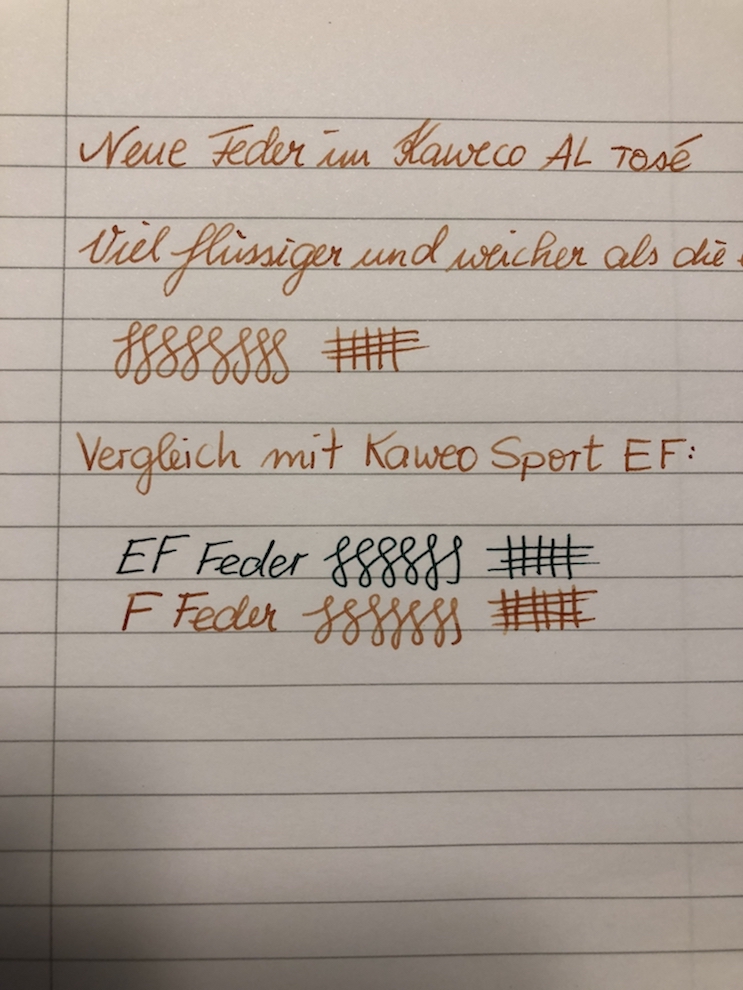 Neue Feder im Kaweco AL rosé
Viel flüssiger und weicher als die
Vergleich mit Kaweo Sport EF:
EF Feder
F Feder